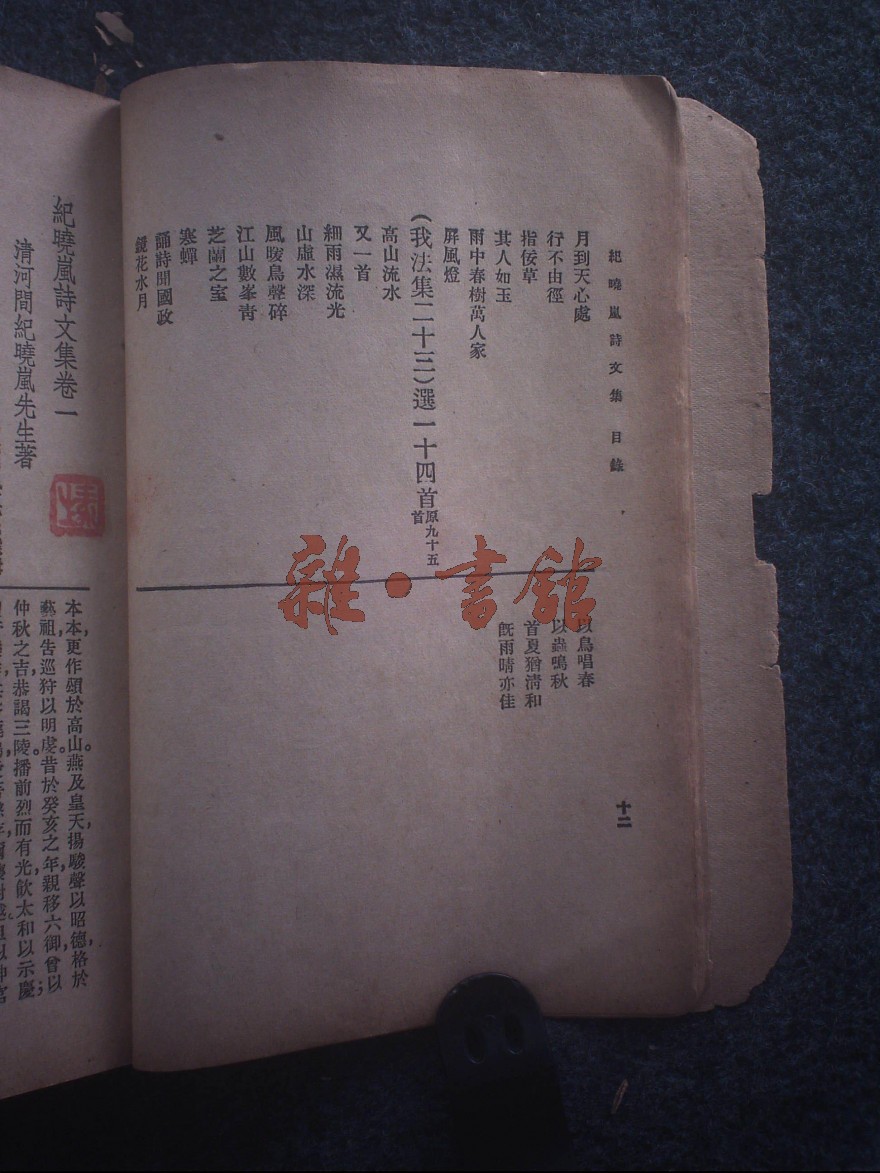 紀曉嵐詩文集 目錄
十二
月到天心處
行不由徑
指佞草
其人如玉
雨中春樹萬人家
屏風燈
(我法集二十三)選一十四首原九十五首
高山流水
又一首
細雨濕流光
山虛水深
風暖鳥聲碎
江山數峯青
芝蘭之室
寒蟬
誦詩聞國政
鏡花水月
以鳥唱春
以蟲鳴秋
首夏猶淸和
旣雨晴亦佳
雜·書館
紀曉嵐詩文集卷一
清河間紀曉嵐先生著
本本,更作頌於高山。燕及皇天,揚駿聲以昭德,格於
藝祖,告巡狩以明虔。昔於癸亥之年,親移六御,曾以
仲秋之吉,恭謁三陵。播前烈而有光,飮太和以示慶;